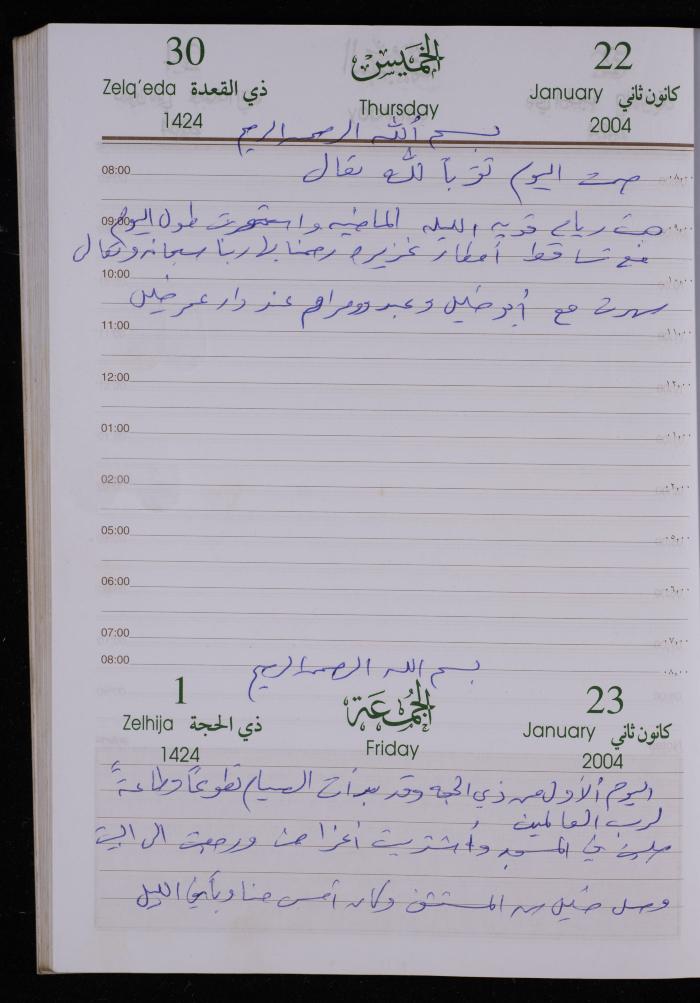 30 الخميس 22
Zelq'eda ذي القعدة Thursday January كانون ثاني
1424 2004
بسم الله الرحمن الرحيم
08:00 صمت اليوم تقرباً لله تعالى ٠٨,٠٠
09:00 هبت رياح قويه الليله الماضيه واستمرت طول اليوم ٠٩,٠٠
مع تساقط أمطار غزيره رحمنا بها ربنا سبحانه وتعالى
10:00 ١٠,٠٠
سهرت مع أبو خليل وعبد عند دار عمر خليل
11:00 ١١,٠٠
12:00 ١٢,٠٠
01:00 ٠١,٠٠
02:00 ٠٢,٠٠
05:00 ٠٥,٠٠
06:00 ٠٦,٠٠
07:00 ٠٧,٠٠
08:00 ٠٨,٠٠
بسم الله الرحمن الرحيم
1 الجمعة 23
Zelhija ذي الحجة Friday January كانون ثاني
1424 2004
اليوم الأول من ذي الحجه وقد بدأت الصيام تطوعاً وطاعةً
لرب العالمين
صليت في المسجد واشتريت أغراض ورجعت الى البيت
وصل خليل من المستشفى وكان أمس الليل